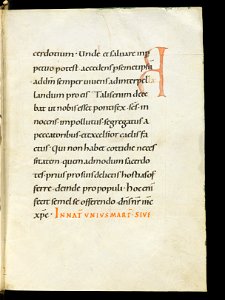 cerdotium · Unde et saluare inp
petuo potest · accedens p semetipsū
addm̄ semper uiuens ad interpel
landum pro eis Talis enim dece
bat ut nobis esset pontifex · scs · in
nocens · impollutus · segregatus a
peccatoribus · et excelsior caelis fa
ctus · Qui non habet cottidie neces
sitatem · quemadmodum sacerdo
tes · prius pro suis delictis hostias of
ferre · deinde pro populi · hoc enī
fecit semel se offerendo · dn̄s nr̄ ihc
xp̄c · IN NAT UNIUS MART SIVE